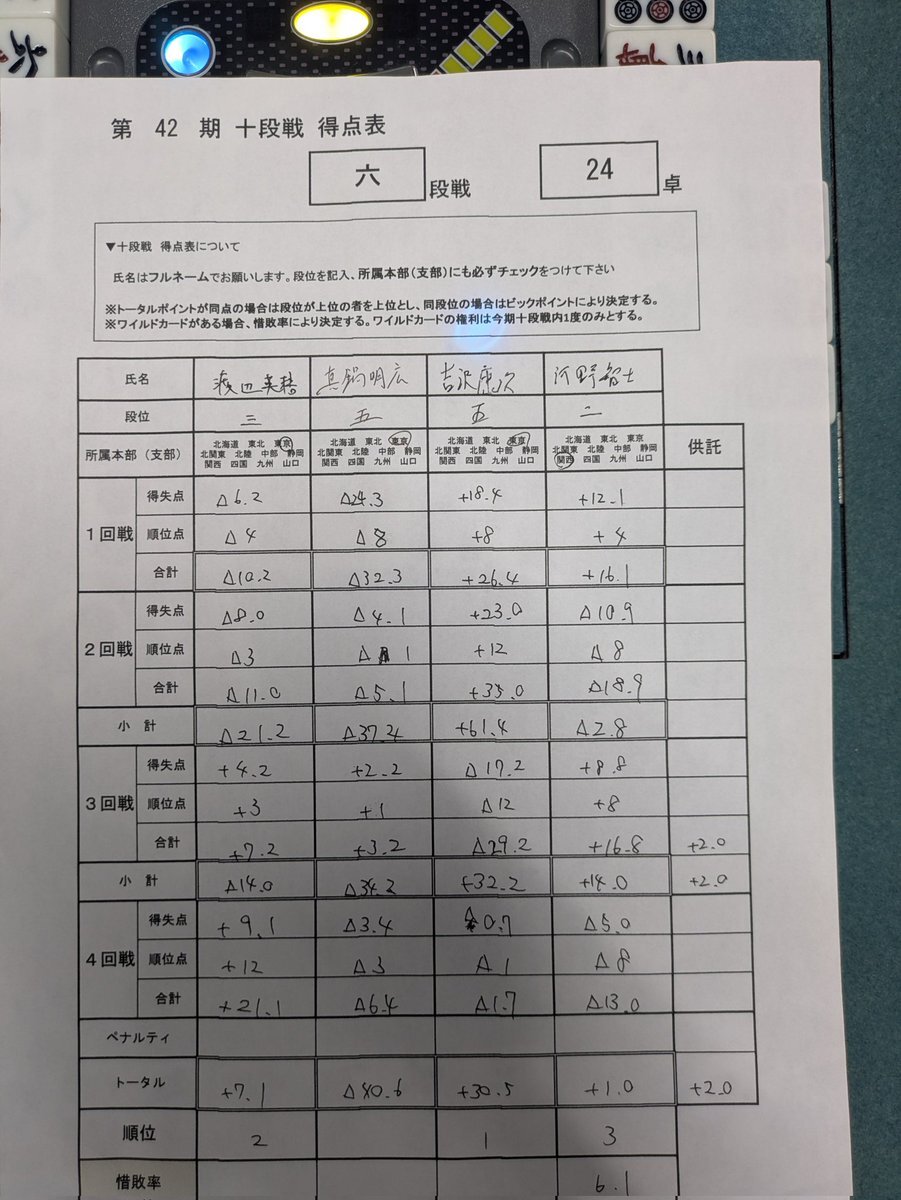 第 42 期 十段戦 得点表
六 段戦 24 卓
▼十段戦 得点表について
氏名はフルネームでお願いします。段位を記入、所属本部(支部)にも必ずチェックをつけて下さい
※トータルポイントが同点の場合は段位が上位の者を上位とし、同段位の場合はビックポイントにより決定する。
※ワイルドカードがある場合、惜敗率により決定する。ワイルドカードの権利は今期十段戦内1度のみとする。
氏名 渡辺英穂 真鍋明広 吉沢康次 河野智士
段位 三 五 五 二
所属本部(支部) 北海道 東北 東京 北海道 東北 東京 北海道 東北 東京 北海道 東北 東京 供託
北関東 北陸 中部 静岡 北関東 北陸 中部 静岡 北関東 北陸 中部 静岡 北関東 北陸 中部 静岡
関西 四国 九州 山口 関西 四国 九州 山口 関西 四国 九州 山口 関西 四国 九州 山口
得失点 Δ6.2 Δ24.3 +18.4 +12.1
1回戦 順位点 Δ4 Δ8 +8 +4
合計 Δ10.2 Δ32.3 +26.4 +16.1
得失点 Δ8.0 Δ4.1 +23.0 Δ10.9
2回戦 順位点 Δ3 Δ1 +12 Δ8
合計 Δ11.0 Δ5.1 +35.0 Δ18.9
小 計 Δ21.2 Δ37.4 +61.4 Δ2.8
得失点 +4.2 +2.2 Δ17.2 +8.8
3回戦 順位点 +3 +1 Δ12 +8
合計 +7.2 +3.2 Δ29.2 +16.8 +2.0
小 計 Δ14.0 Δ34.2 +32.2 +14.0 +2.0
得失点 +9.1 Δ3.4 Δ0.7 Δ5.0
4回戦 順位点 +12 Δ3 Δ1 Δ8
合計 +21.1 Δ6.4 Δ1.7 Δ13.0
ペナルティ
トータル +7.1 Δ40.6 +30.5 +1.0 +2.0
順位 2 1 3
惜敗率 6.1